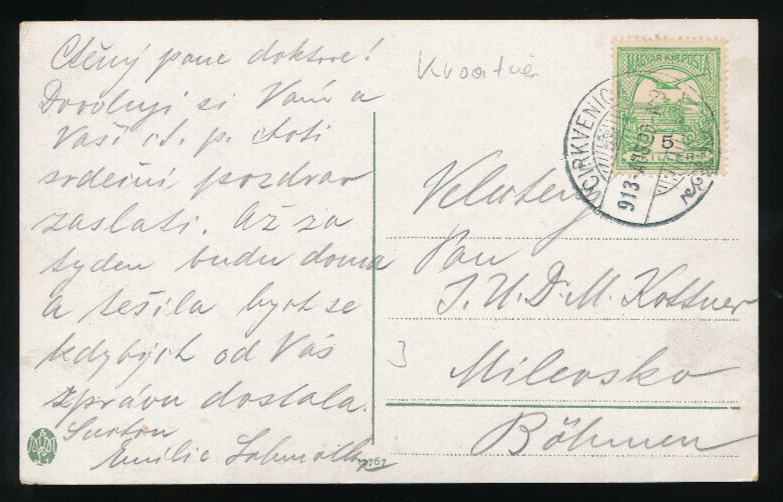 Ctěný pane doktore!
Dovoluji si Vám a
Vaší ct. p. choti
srdečný pozdrav
zaslati. Až za
tyden budu doma
a těšila bych se
kdybych od Vás
zprávu dostala.
Emilie
Kroatien
MAGYAR KIR. POSTA
5
FILLÉR
CIRKVENICA
913
Pan
J.U.D. M. Kottner
Milevsko
Böhmen
3